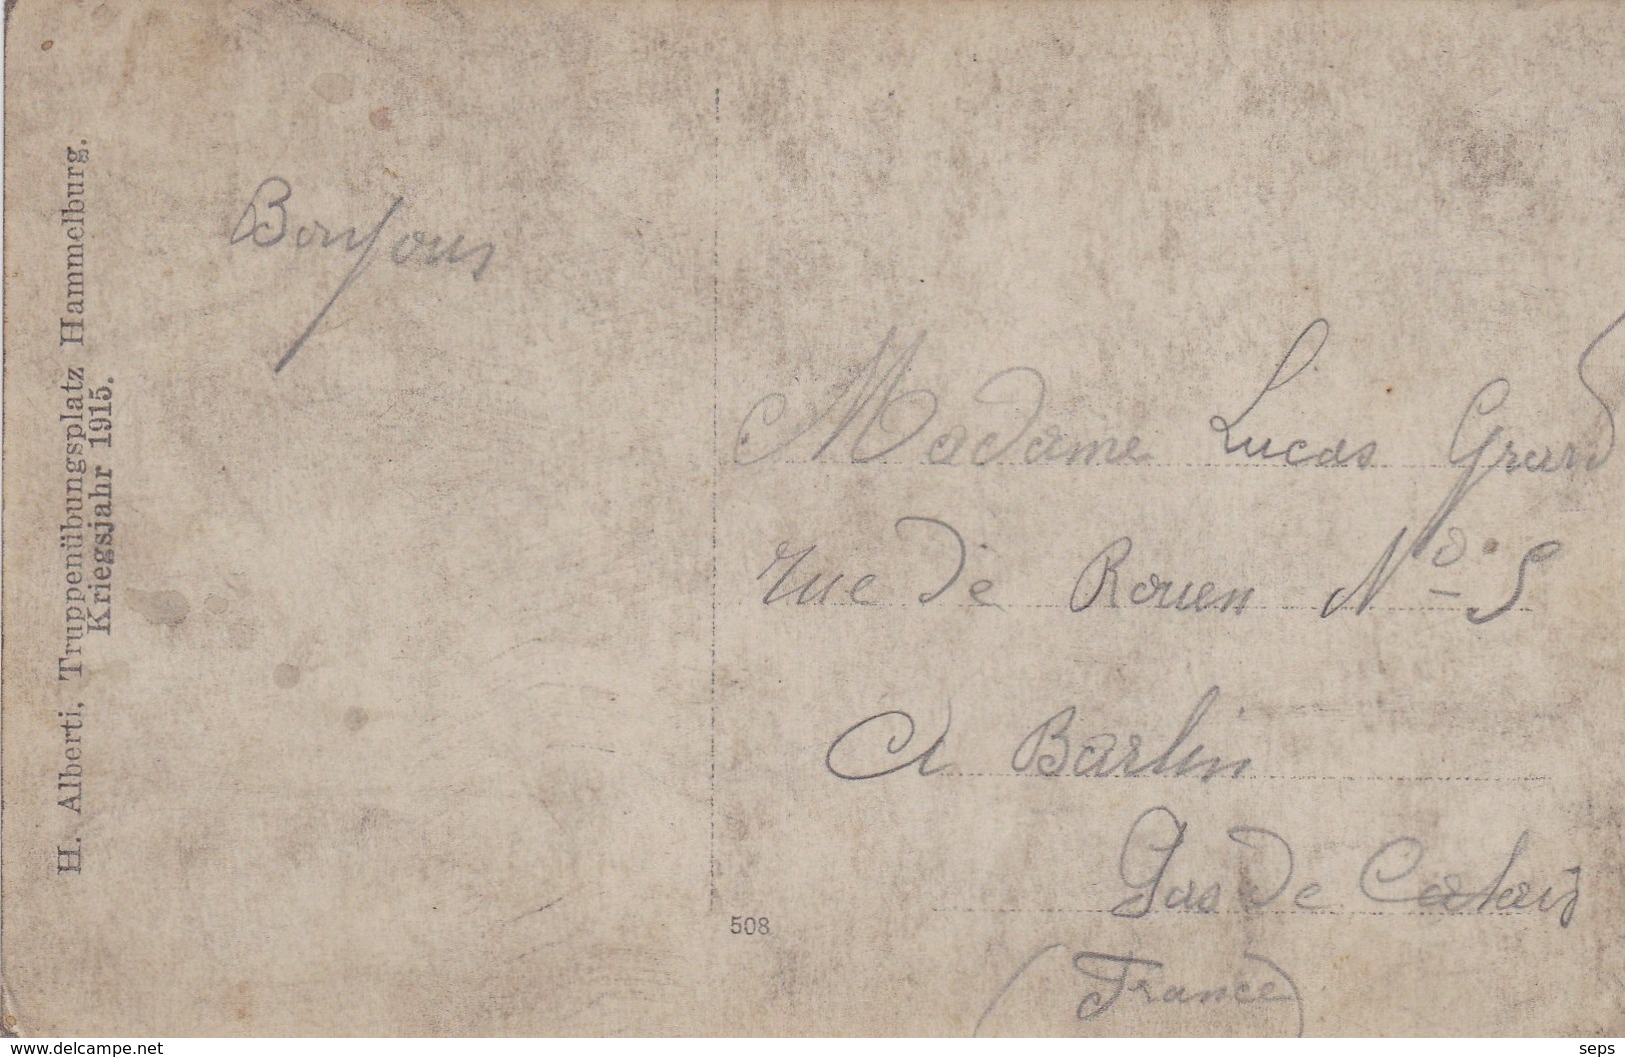 H. Alberti, Truppenübungsplatz Hammelburg.
Kriegsjahr 1915.
Bonjour
Madame Lucas Grard
rue de Rouen No 5
A Barlin
Pas de Calais
(France)
508
www.delcampe.net
seps